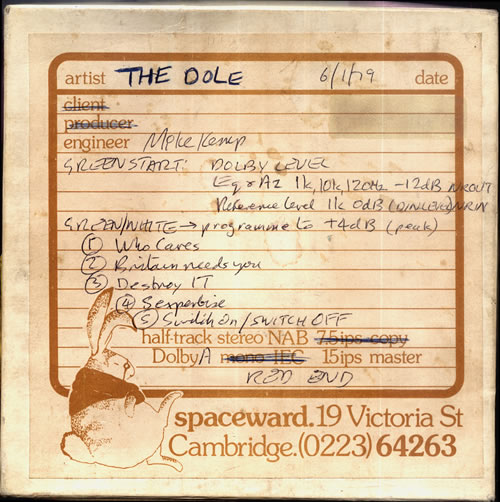 artist THE DOLE 6/1/79 date
client
producer
engineer Mike Kemp
GREEN START: DOLBY LEVEL
Eq & Az 1k, 10k, 120Hz -12dB NROUT
Reference level 1k 0dB (DINLEVEL) NRIN
GREEN/WHITE → programme to +4dB (peak)
① Who Cares
② Britain needs you
③ Destroy IT
④ Sexpertise
⑤ Switch On/SWITCH OFF
half-track stereo NAB 7.5ips copy
Dolby A mono IEC 15ips master
RED END
spaceward. 19 Victoria St
Cambridge. (0223) 64263